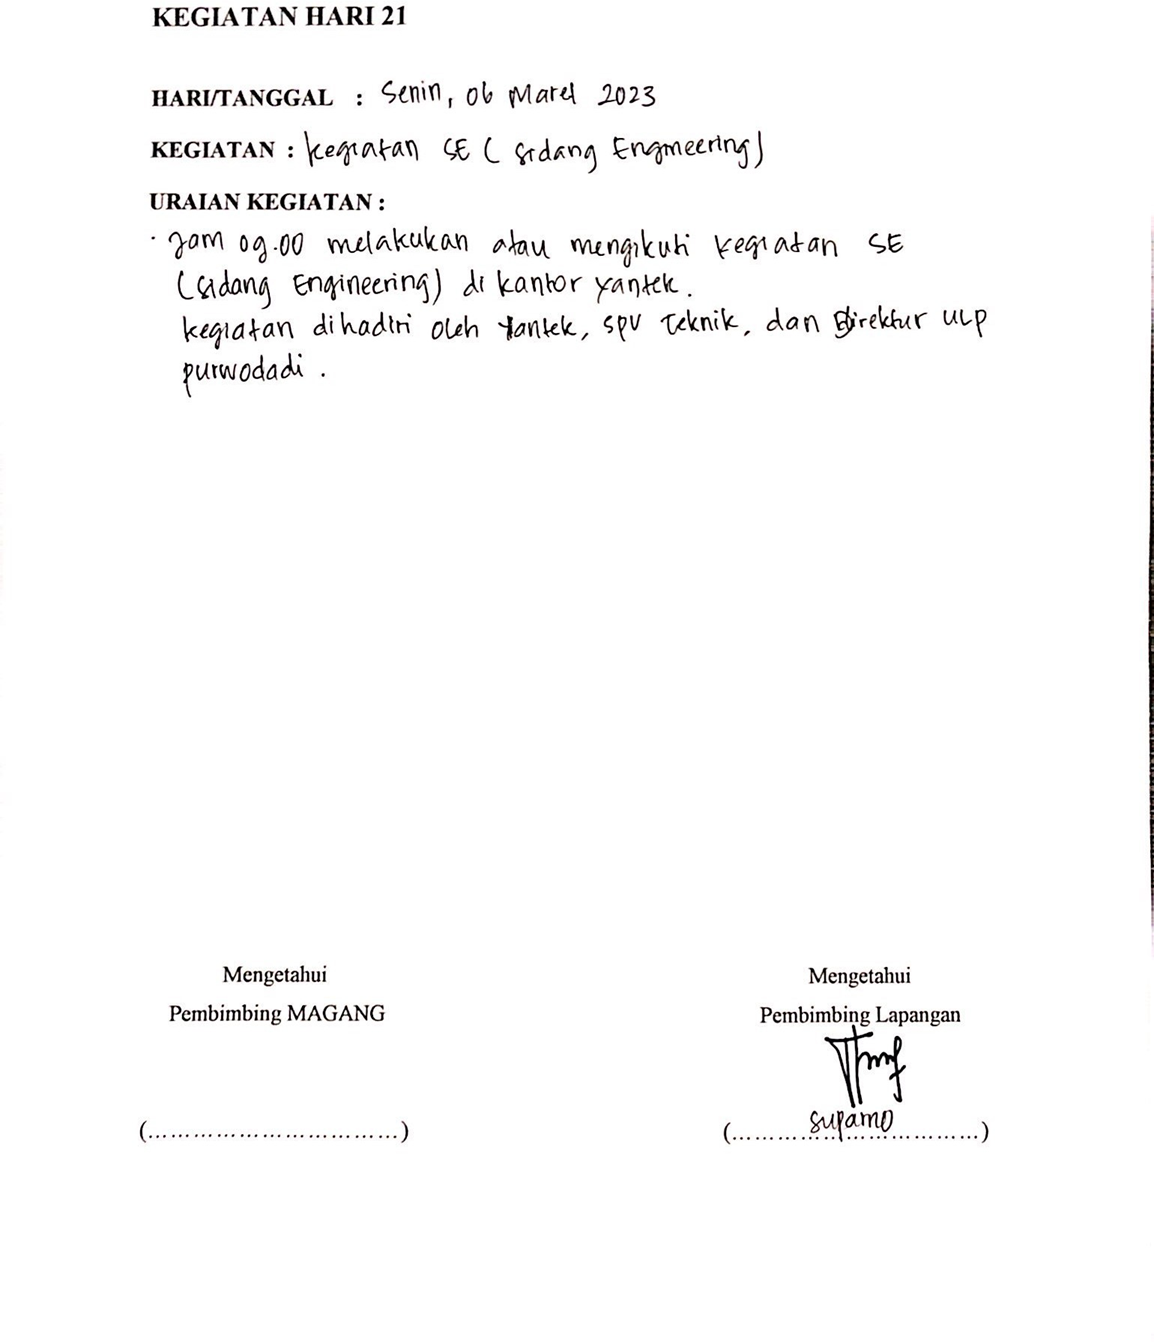 KEGIATAN HARI 21
HARI/TANGGAL : Senin, 06 Maret 2023
KEGIATAN : Kegiatan SE ( Sidang Engineering)
URAIAN KEGIATAN :
· Jam 09.00 melakukan atau mengikuti kegiatan SE
(Sidang Engineering) di kantor yantek.
kegiatan dihadiri oleh Yantek, SPV Teknik, dan Direktur ULP
purwodadi .
Mengetahui Mengetahui
Pembimbing MAGANG Pembimbing Lapangan
Suparno
(................................) (................................)